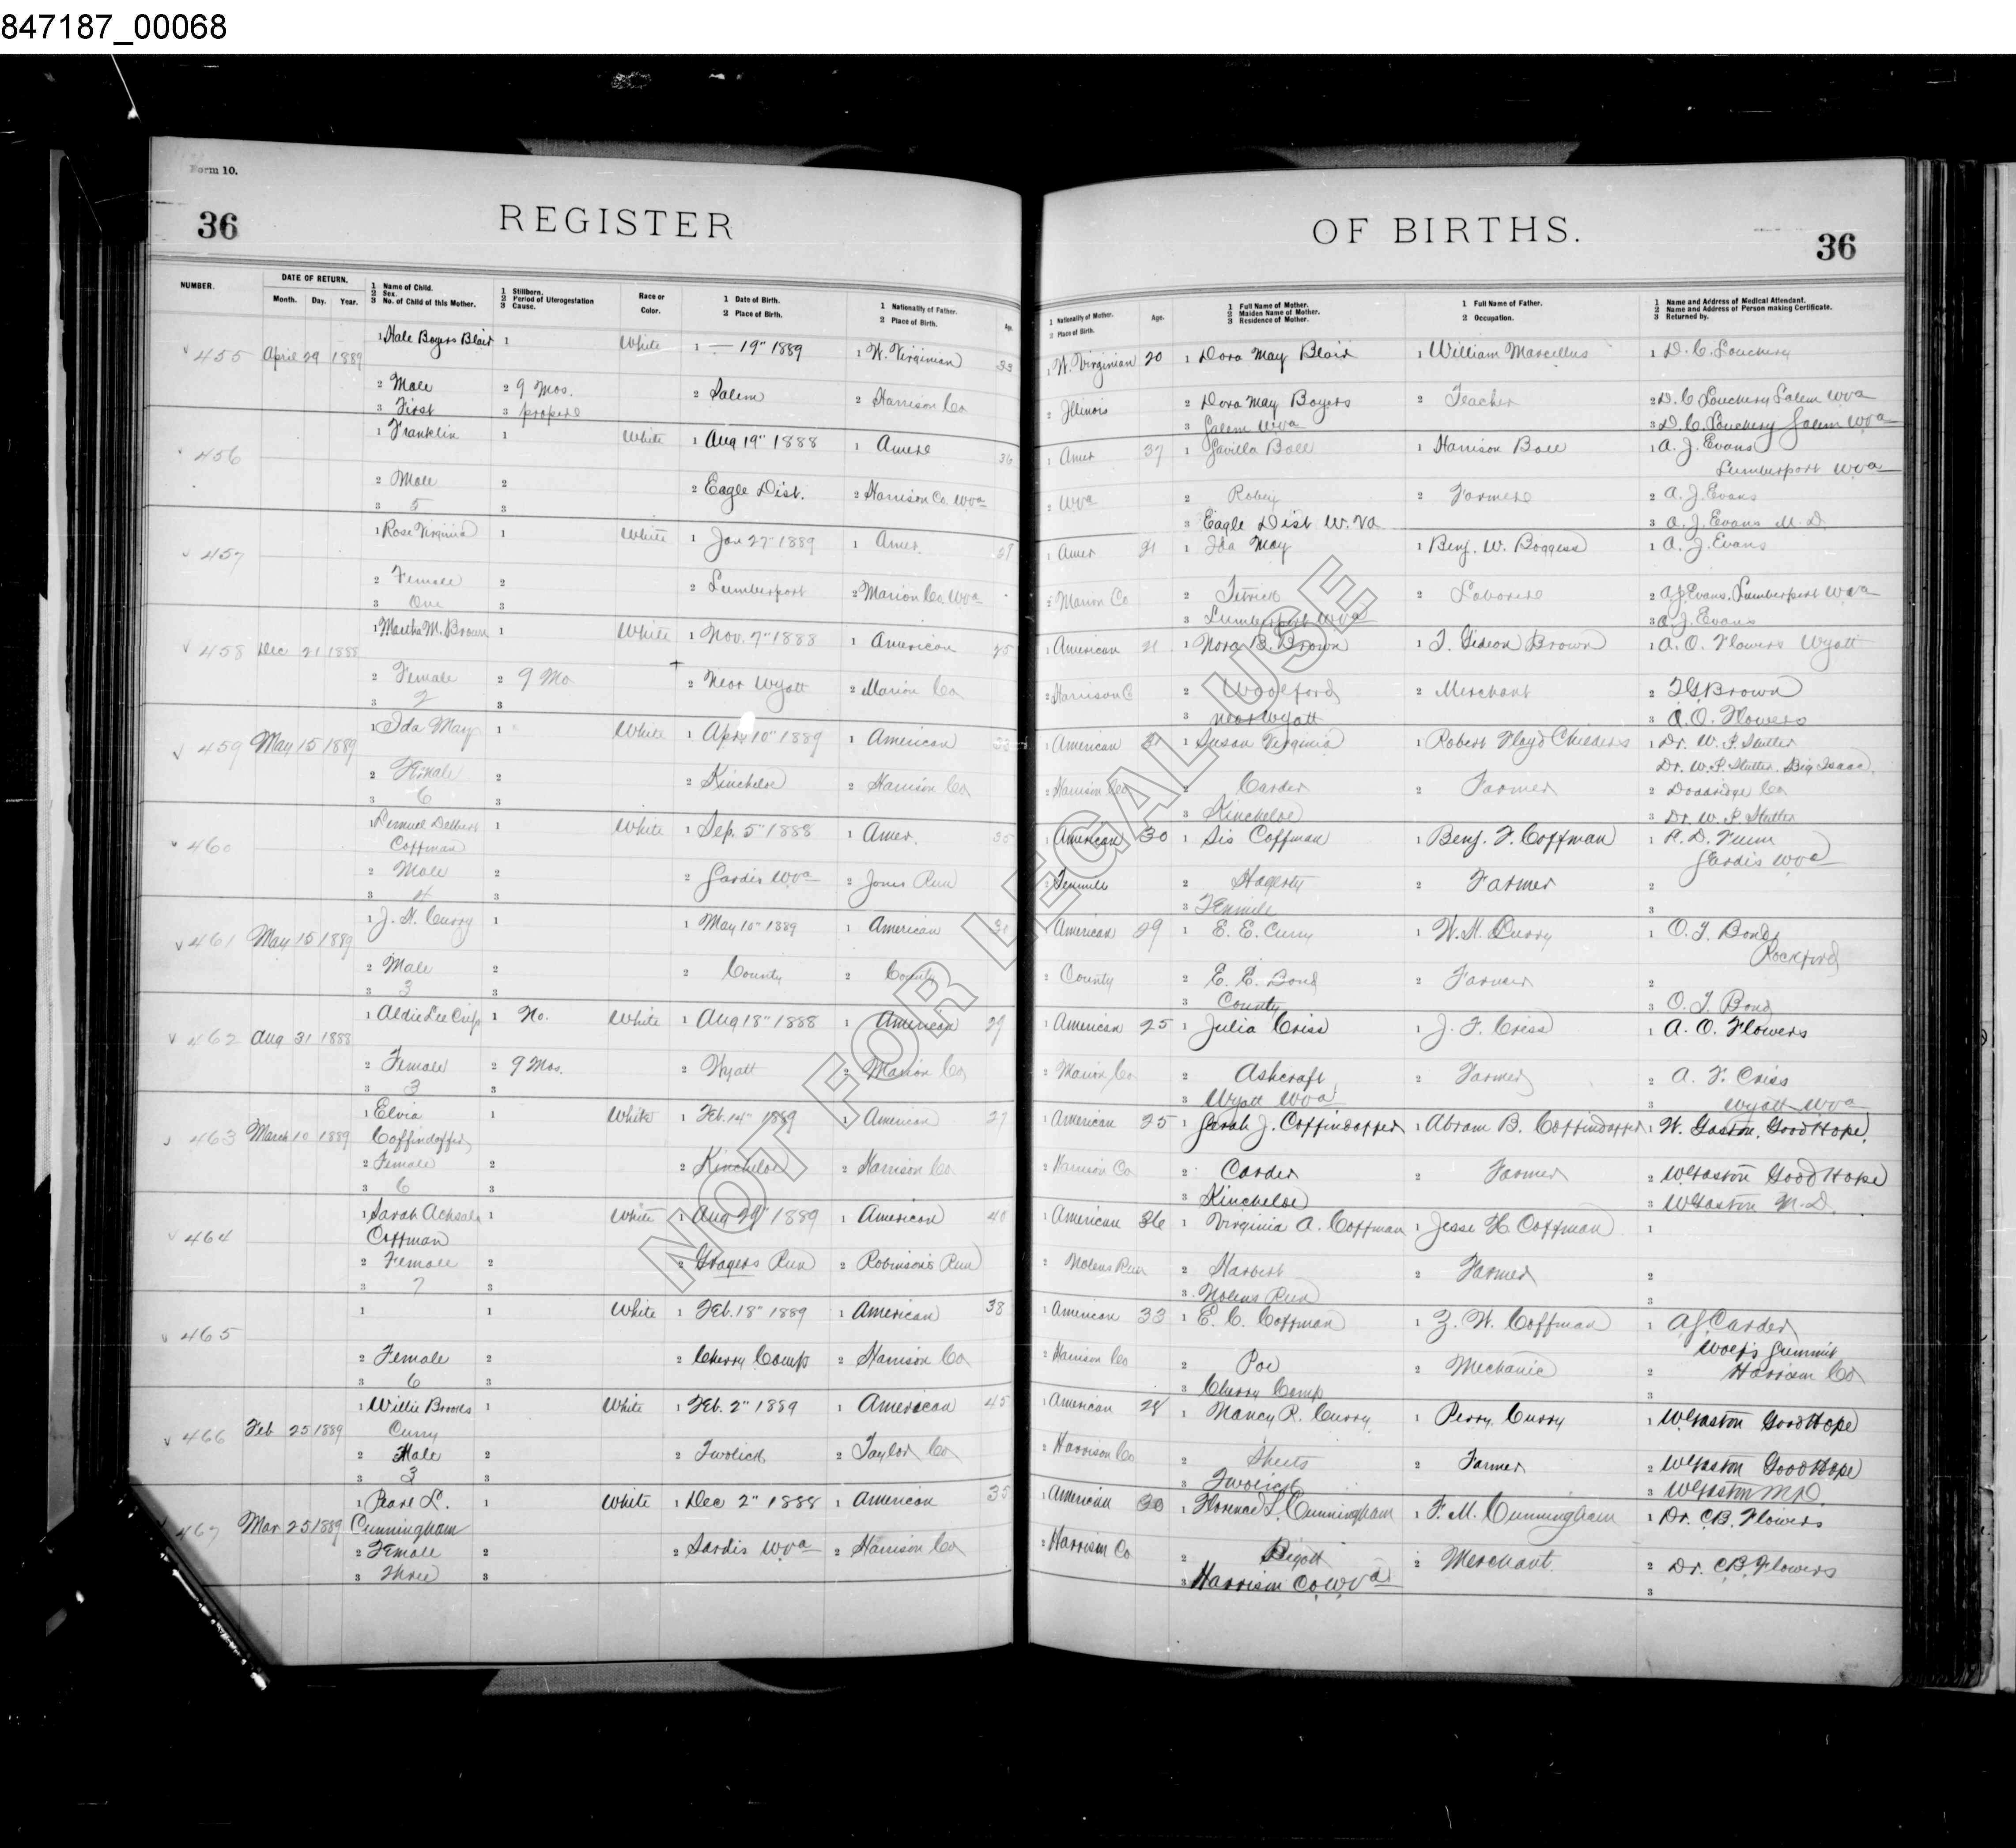 847187_00068
Form 10.
36 REGISTER OF BIRTHS. 36
NUMBER. DATE OF RETURN. Month. Day. Year. 1 Name of Child. 2 Sex. 3 No. of Child of this Mother. 1 Stillborn. 2 Period of Uterogestation 3 Cause. Race or Color. 1 Date of Birth. 2 Place of Birth. 1 Nationality of Father. 2 Place of Birth. Age. 1 Nationality of Mother. 2 Place of Birth. Age. 1 Full Name of Mother. 2 Maiden Name of Mother. 3 Residence of Mother. 1 Full Name of Father. 2 Occupation. 1 Name and Address of Medical Attendant. 2 Name and Address of Person making Certificate. 3 Returned by.
455 April 29 1889 1 Hale Boyers Blair 1 White 1 — 19" 1889 1 W. Virginian 33 1 W. Virginian 20 1 Dora May Blair 1 William Marcellus 1 D. C. Louchery
2 Male 2 9 Mos. 2 Salem 2 Harrison Co 2 Illinois 2 Dora May Boyers 2 Teacher 2 D. C Louchery Salem Wva
3 First 3 3 Salem Wva 3 D. C. Louchery Salem Wva
456 1 Franklin 1 White 1 Aug 19" 1888 1 Amer 36 1 Amer 37 1 Ball 1 Harrison Ball 1 A. J. Evans
Lumberport Wva
2 Male 2 2 Eagle Dist. 2 Harrison Co. Wva 2 Wva 2 Robey 2 Farmer 2 A. J. Evans
3 5 3 3 Eagle Dist W. Va 3 A. J. Evans M. D.
457 1 Rose Virginia 1 White 1 Jan 27" 1889 1 Amer. 1 Amer 21 1 Ida May 1 Benj. W. Boggess 1 A. J. Evans
2 Female 2 2 Lumberport 2 Marion Co. Wva 2 Marion Co 2 Tetrick 2 Laborer 2 A J. Evans. Lumberport Wva
3 One 3 3 Lumberport Wva 3 A. J. Evans
458 Dec 21 1888 1 Martha M. Brown 1 White 1 Nov. 7" 1888 1 American 25 1 American 21 1 Nora B. Brown 1 T. Gideon Brown 1 A. O. Flowers Wyatt
2 Female 2 9 Mo 2 Near Wyatt 2 Marion Co 2 Harrison C 2 Woolford 2 Merchant 2 T G Brown
3 2 3 3 near Wyatt 3 A. O. Flowers
459 May 15 1889 1 Ida May 1 White 1 Apr. 10" 1889 1 American 33 1 American 31 1 Susan Virginia 1 Robert Floyd Childers 1 Dr. W. P. Stutter
Dr. W. P. Stutter. Big Isaac.
2 Female 2 2 Kincheloe 2 Harrison Co 2 Harrison Co 2 Carder 2 Farmer 2 Doddridge Co
3 6 3 3 Kincheloe 3 Dr. W. P. Stutter
460 1 Lemuel Delbert Coffman 1 White 1 Sep. 5" 1888 1 Amer. 35 1 American 30 1 Sis Coffman 1 Benj. F. Coffman 1
Sardis Wva
2 Male 2 2 Sardis Wva 2 Jones Run 2 Tenmile 2 Hagerty 2 Farmer 2
3 4 3 3 Tenmile 3
461 May 15 1889 1 J. H. Curry 1 1 May 10" 1889 1 American 1 American 29 1 E. E. Curry 1 W. H. Curry 1 O. T. Bond
Rockford
2 Male 2 2 County 2 County 2 County 2 E. E. Bond 2 Farmer 2
3 3 3 3 County 3 O. T. Bond
462 Aug 31 1888 1 Aldie Lee Criss 1 No. White 1 Aug 18" 1888 1 American 29 1 American 25 1 Julia Criss 1 J. F. Criss 1 A. O. Flowers
2 Female 2 9 Mos. 2 Wyatt 2 Marion Co 2 Marion Co 2 Ashcraft 2 Farmer 2 A. F. Criss
3 3 3 3 Wyatt Wva 3 Wyatt Wva
463 March 10 1889 1 Elvia Coffindaffer 1 White 1 Feb. 14" 1889 1 American 27 1 American 25 1 Sarah J. Coffindaffer 1 Abram B. Coffindaffer 1 W. Gaston. Good Hope.
2 Female 2 2 Kincheloe 2 Harrison Co 2 Harrison Co 2 Carder 2 Farmer 2 W Gaston Good Hope
3 6 3 3 Kincheloe 3 W Gaston M. D.
464 1 Sarah Achsale Coffman 1 White 1 Aug 29" 1889 1 American 40 1 American 36 1 Virginia A. Coffman 1 Jesse H Coffman 1
2 Female 2 2 Gragers Run 2 Robinson's Run 2 Nolens Run 2 Harbert 2 Farmer 2
3 7 3 3 Nolens Run 3
465 1 1 White 1 Feb. 18" 1889 1 American 38 1 American 33 1 E. C. Coffman 1 Z. W. Coffman 1 A. J. Carder
Wolfs Summit
2 Female 2 2 Cherry Camp 2 Harrison Co 2 Harrison Co 2 Poe 2 Mechanic 2 Harrison Co
3 6 3 3 Cherry Camp 3
466 Feb 25 1889 1 Willie Brooks Curry 1 White 1 Feb. 2" 1889 1 American 45 1 American 28 1 Nancy R. Curry 1 Perry Curry 1 W Gaston Good Hope
2 Male 2 2 Twolick 2 Taylor Co 2 Harrison Co 2 Sheets 2 Farmer 2 W Gaston Good Hope
3 3 3 3 Twolick 3 W Gaston M.D.
467 Mar 25 1889 1 Pearl L. Cunningham 1 White 1 Dec 2" 1888 1 American 35 1 American 30 1 Florence L. Cunningham 1 F. M. Cunningham 1 Dr. C.B. Flowers
2 Female 2 2 Sardis Wva 2 Harrison Co 2 Harrison Co 2 Bigott 2 Merchant 2 Dr. C.B. Flowers
3 Three 3 3 Harrison Co Wva 3
NOT FOR LEGAL USE